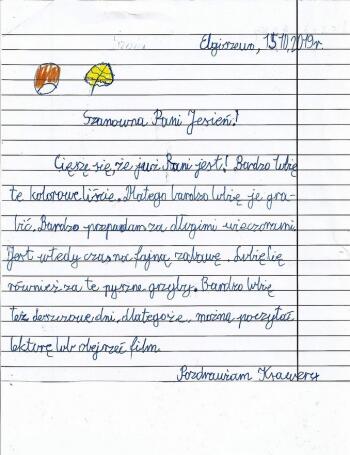 Elgiszewo, 15.10.2019r.
Szanowna Pani Jesień!
Cieszę się, że już Pani jest! Bardzo lubię
te kolorowe liście. Dlatego bardzo lubię je gra-
bić. Bardzo przepadam za długimi wieczorami.
Jest wtedy czas na fajną zabawę. Lubię Cię
również za te pyszne grzyby. Bardzo lubię
też deszczowe dni, dlatego że, można poczytać
lekturę lub obejrzeć film.
Pozdrawiam